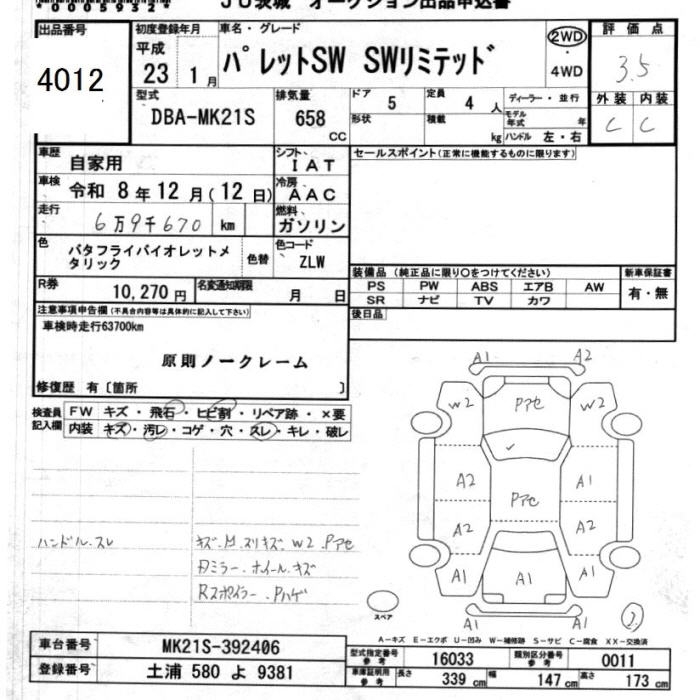 *0005932*
JU茨城 オークション出品申込書
出品番号
4012
初度登録年月
平成
23 1月
車名・グレード
パレットSW SWリミテッド
2WD
・
4WD
評価点
3.5
外装 内装
C C
型式
DBA-MK21S
排気量
658
CC
ドア 5
定員 4 人
形状
積載 kg
ディーラー・並行
モデル年式 年
ハンドル 左・右
車歴
自家用
シフト
IAT
セールスポイント(正常に機能するものに限ります)
車検
令和 8年12月(12日)
冷房
AAC
走行
6万9千670 km
燃料
ガソリン
色
バタフライバイオレットメタリック
色替
色コード
ZLW
R券
10,270円
名変通知期限
月 日
装備品(純正品に限り○をつけてください)
新車保証書
PS PW ABS エアB AW
SR ナビ TV カワ
有・無
注意事項申告欄(不具合内容等は具体的に記入して下さい)
後日品
車検時走行63700km
原則ノークレーム
修復歴 有〔箇所 〕
検査員記入欄
FW キズ・飛石・ヒビ割・リペア跡・×要
内装 キズ・汚レ・コゲ・穴・スレ・キレ・破レ
A1 A2
W2 Pアセ W2
A2 A1
Pアセ
A2 A2
A1 A1 A1
A1
ハンドル.スレ
キズ.M.スリキズ.W2.Pアセ
Dミラー.ホイール.キズ
Rスポイラー.Pハゲ
スペア
2.
A-キズ E-エクボ U-凹み W-補修跡 S-サビ C-腐食 XX-交換済
車台番号
MK21S-392406
型式指定番号
参考
16033
類別区分番号
参考
0011
登録番号
土浦 580 よ 9381
車庫証明用
参考
長さ 339 cm
幅 147 cm
高さ 173 cm